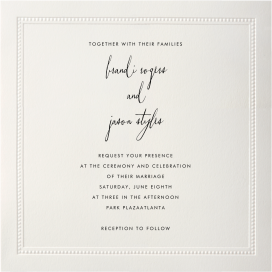 TOGETHER WITH THEIR FAMILIES
brandi rogers
and
jason styles
REQUEST YOUR PRESENCE
AT THE CEREMONY AND CELEBRATION
OF THEIR MARRIAGE
SATURDAY, JUNE EIGHTH
AT THREE IN THE AFTERNOON
PARK PLAZAATLANTA
RECEPTION TO FOLLOW